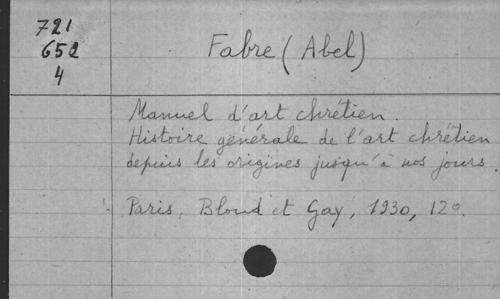 721
652
4
Fabre (Abel)
Manuel d'art chrétien.
Histoire générale de l'art chrétien
depuis les origines jusqu'à nos jours.
Paris, Bloud et Gay, 1930, 12°.